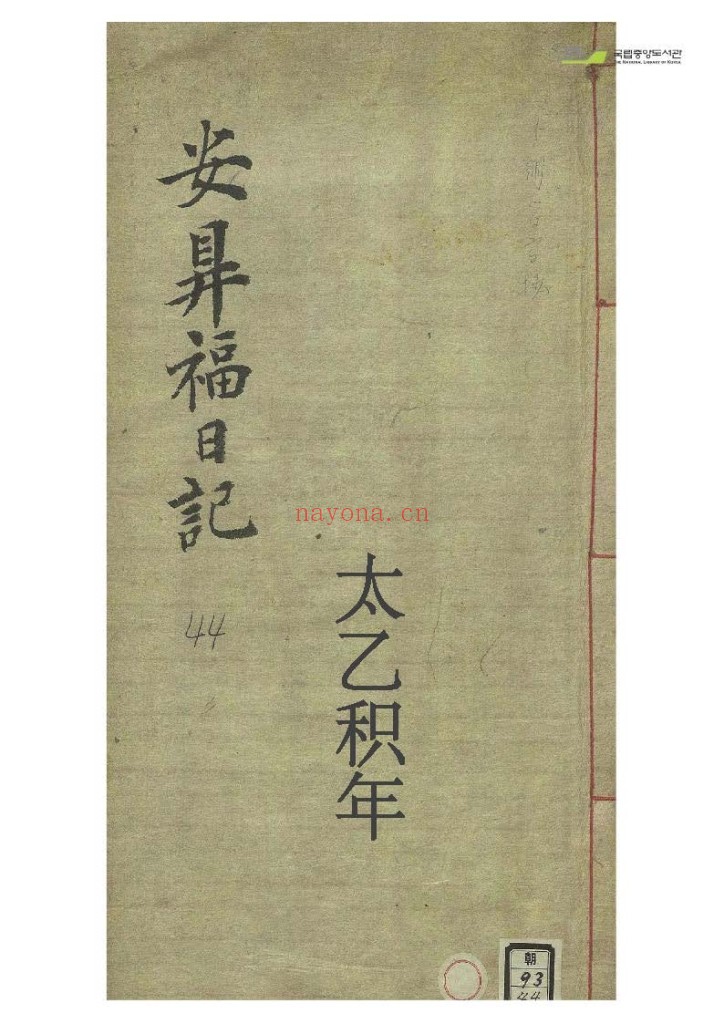 국립중앙도서관
THE NATIONAL LIBRARY OF KOREA
安鼎福日記
44
nayona.cn
太乙积年
朝
93
44